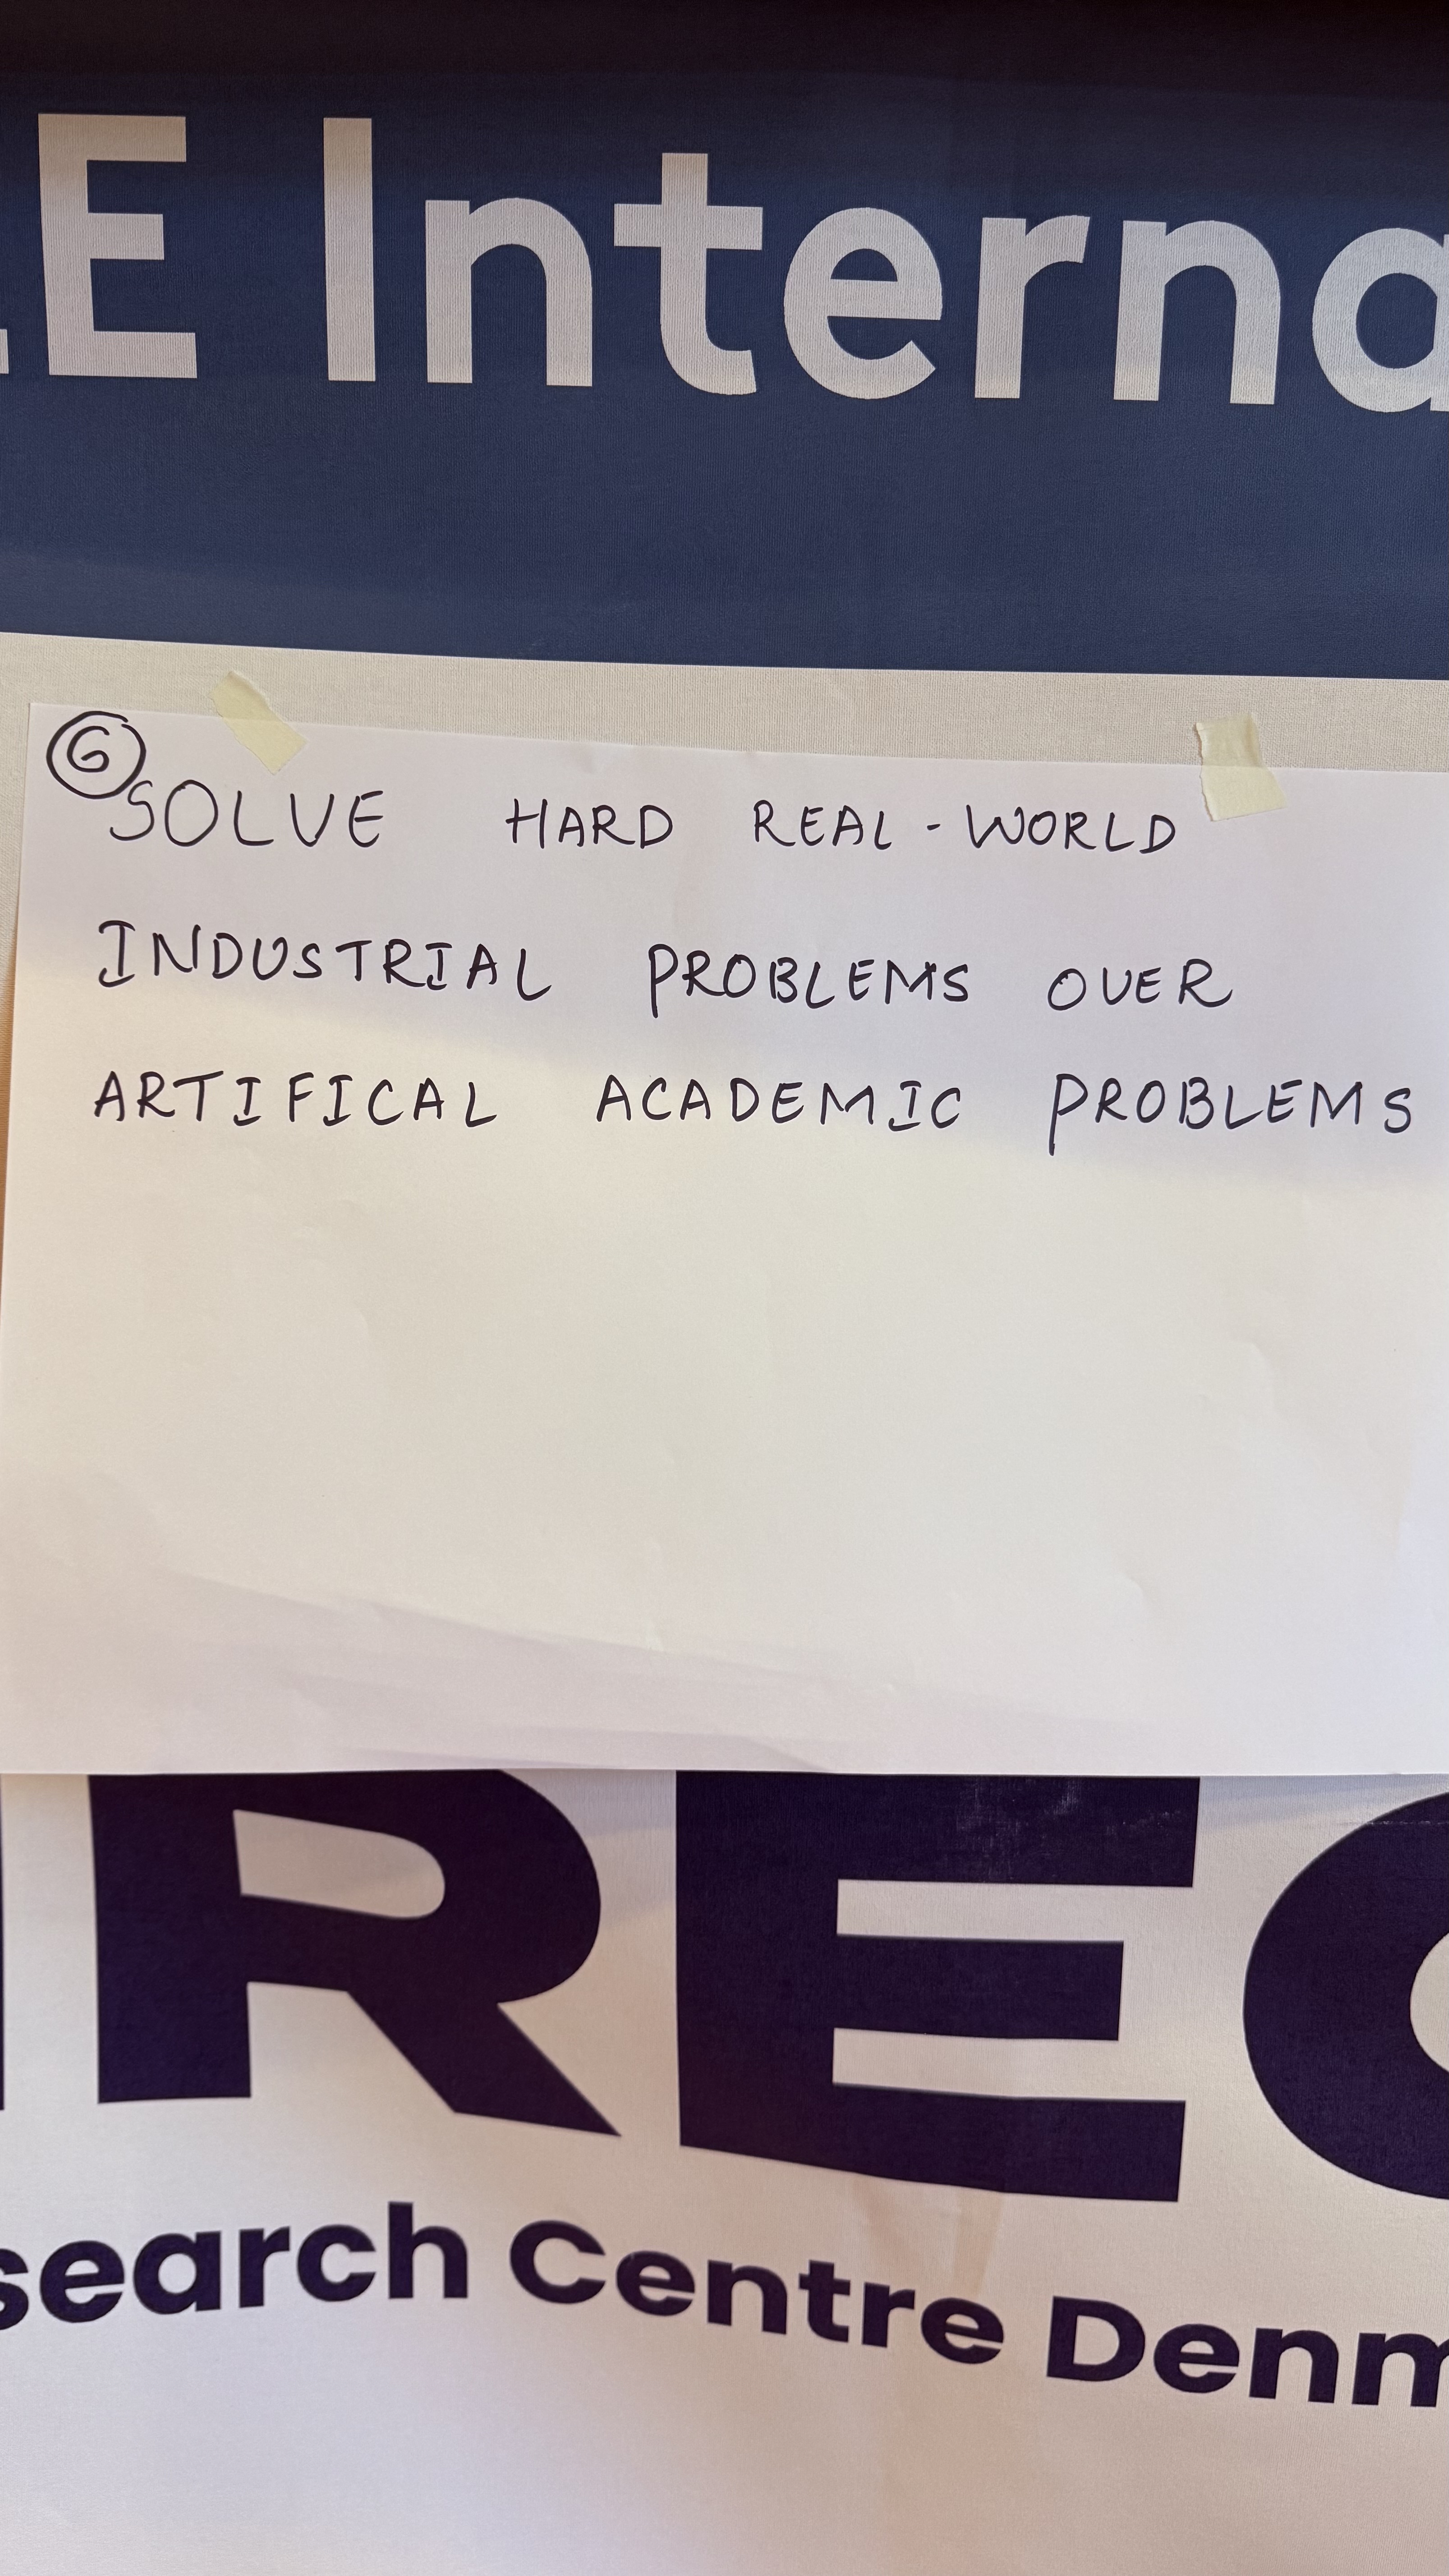 E Interna
6
SOLVE HARD REAL-WORLD
INDUSTRIAL PROBLEMS OVER
ARTIFICAL ACADEMIC PROBLEMS
REC
search Centre Denm